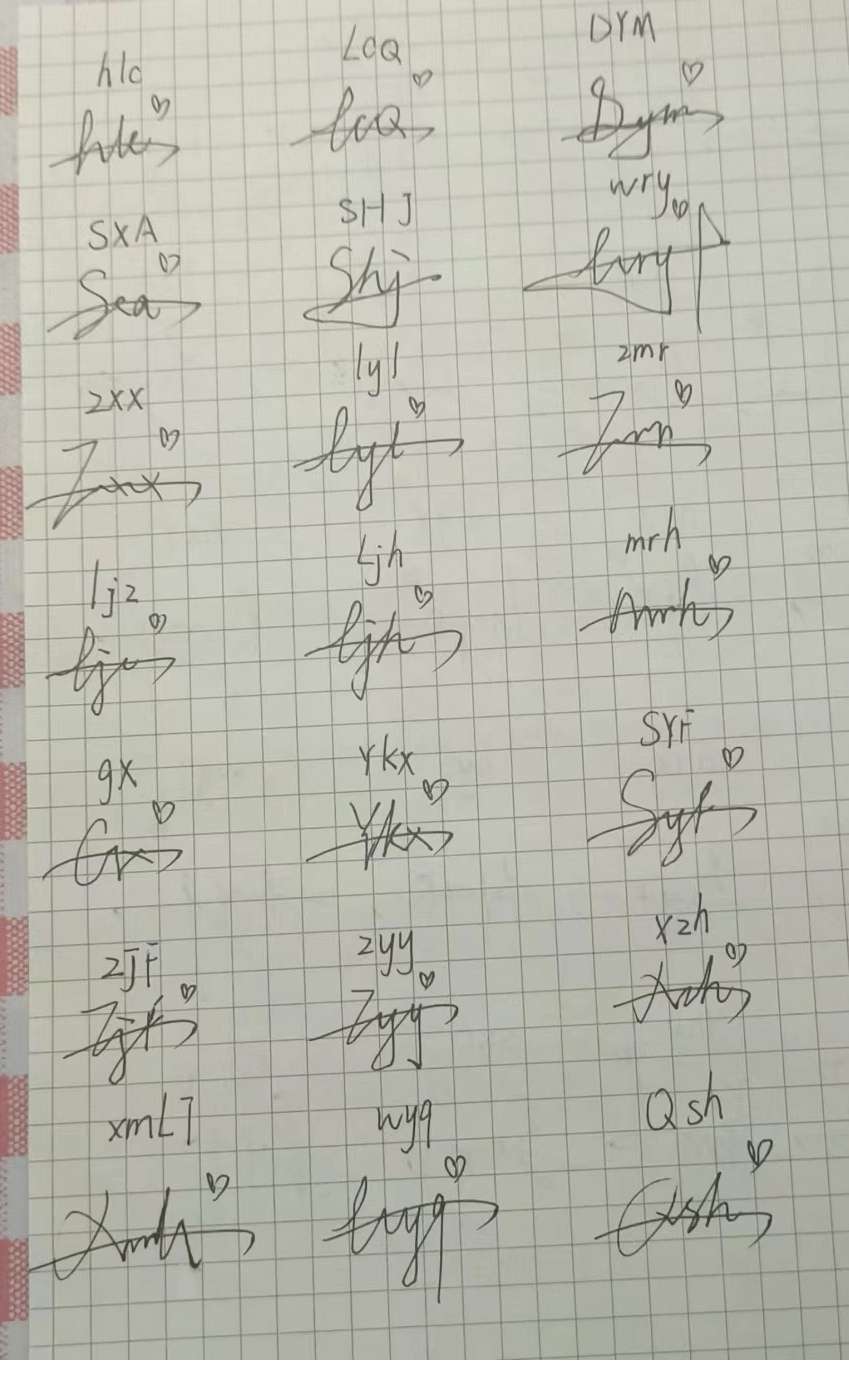 hlc LCQ DYM
hlc LCQ Dym
SXA SHJ wry
Sxa Shj wry
zxx lyl zmr
Zxx lyl Zmr
ljz Ljh mrh
ljz ljh mrh
gx Ykx SYF
Gx Ykx Syf
zjF zyy xzh
Zjf Zyy Xzh
wyq Qsh
wyq Qsh